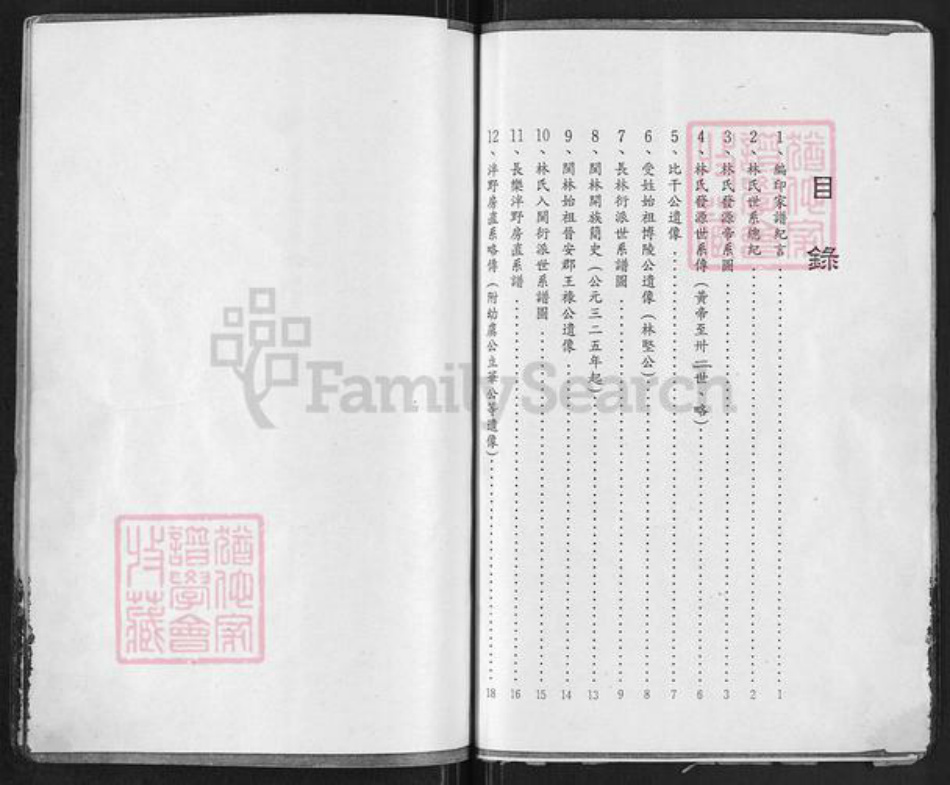 目錄
1、編印家譜紀言 1
2、林氏世系總紀 2
3、林氏發源帝系圖 3
4、林氏發源世系傳（黃帝至卅二世 略） 6
5、比干公遺像 7
6、受姓始祖博陵公遺像（林堅公） 8
7、長林衍派世系譜圖 9
8、閩林開族簡史（公元三二五年起） 13
9、閩林始祖晉安郡王祿公遺像 14
10、林氏入閩衍派世系譜圖 15
11、長樂泮野房直系譜 16
12、泮野房直系略傳（附幼虞公立華公等遺像） 18
猶他家譜學會收藏
FamilySearch